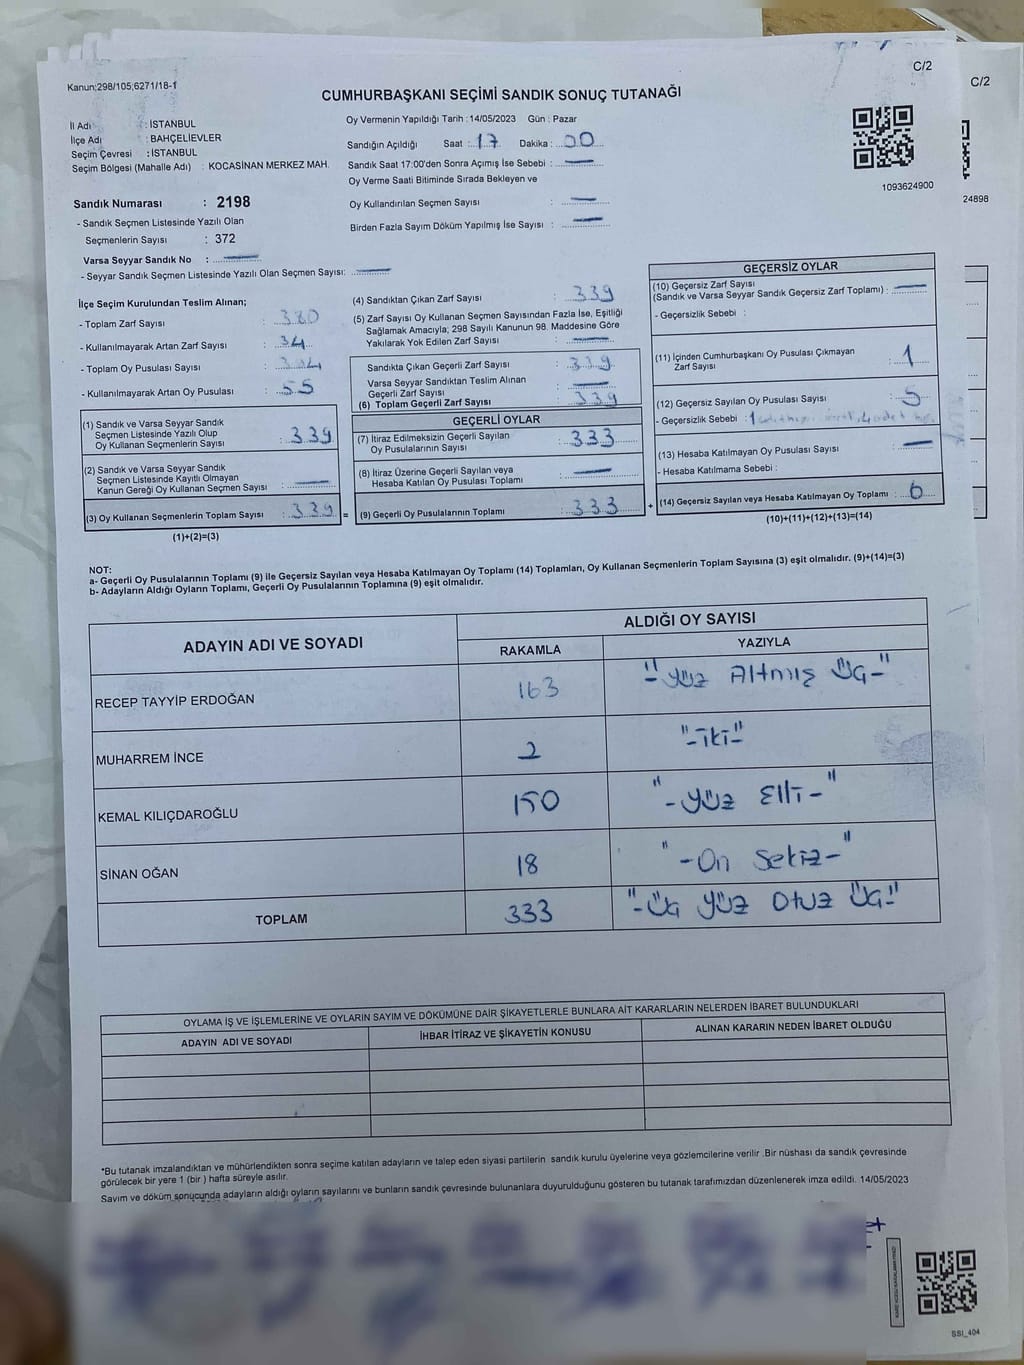 C/2
C/2
Kanun;298/105;6271/18-1
CUMHURBAŞKANI SEÇİMİ SANDIK SONUÇ TUTANAĞI
İl Adı : İSTANBUL
İlçe Adı : BAHÇELİEVLER
Seçim Çevresi : İSTANBUL
Seçim Bölgesi (Mahalle Adı) : KOCASİNAN MERKEZ MAH.
Sandık Numarası : 2198
- Sandık Seçmen Listesinde Yazılı Olan
Seçmenlerin Sayısı : 372
Varsa Seyyar Sandık No :
- Seyyar Sandık Seçmen Listesinde Yazılı Olan Seçmen Sayısı:
Oy Vermenin Yapıldığı Tarih : 14/05/2023 Gün : Pazar
Sandığın Açıldığı Saat : 17 Dakika : 00
Sandık Saat 17:00'den Sonra Açımış İse Sebebi :
Oy Verme Saati Bitiminde Sırada Bekleyen ve
Oy Kullandırılan Seçmen Sayısı :
Birden Fazla Sayım Döküm Yapılmış İse Sayısı :
1093624900
24898
İlçe Seçim Kurulundan Teslim Alınan;
- Toplam Zarf Sayısı : 380
- Kullanılmayarak Artan Zarf Sayısı : 34
- Toplam Oy Pusulası Sayısı :
- Kullanılmayarak Artan Oy Pusulası : 55
(1) Sandık ve Varsa Seyyar Sandık
Seçmen Listesinde Yazılı Olup
Oy Kullanan Seçmenlerin Sayısı : 339
(2) Sandık ve Varsa Seyyar Sandık
Seçmen Listesinde Kayıtlı Olmayan
Kanun Gereği Oy Kullanan Seçmen Sayısı :
(3) Oy Kullanan Seçmenlerin Toplam Sayısı : 339 =
(1)+(2)=(3)
(4) Sandıktan Çıkan Zarf Sayısı : 339
(5) Zarf Sayısı Oy Kullanan Seçmen Sayısından Fazla İse, Eşitliği
Sağlamak Amacıyla; 298 Sayılı Kanunun 98. Maddesine Göre
Yakılarak Yok Edilen Zarf Sayısı :
Sandıkta Çıkan Geçerli Zarf Sayısı : 339
Varsa Seyyar Sandıktan Teslim Alınan
Geçerli Zarf Sayısı :
(6) Toplam Geçerli Zarf Sayısı : 339
GEÇERLİ OYLAR
(7) İtiraz Edilmeksizin Geçerli Sayılan
Oy Pusulasının Sayısı : 333
(8) İtiraz Üzerine Geçerli Sayılan veya
Hesaba Katılan Oy Pusulası Toplamı :
(9) Geçerli Oy Pusulalarının Toplamı : 333 +
GEÇERSİZ OYLAR
(10) Geçersiz Zarf Sayısı
(Sandık ve Varsa Seyyar Sandık Geçersiz Zarf Toplamı) :
- Geçersizlik Sebebi :
(11) İçinden Cumhurbaşkanı Oy Pusulası Çıkmayan
Zarf Sayısı : 1
(12) Geçersiz Sayılan Oy Pusulası Sayısı : 5
- Geçersizlik Sebebi :
(13) Hesaba Katılmayan Oy Pusulası Sayısı :
- Hesaba Katılmama Sebebi :
(14) Geçersiz Sayılan veya Hesaba Katılmayan Oy Toplamı : 6
(10)+(11)+(12)+(13)=(14)
NOT:
a- Geçerli Oy Pusulalarının Toplamı (9) ile Geçersiz Sayılan veya Hesaba Katılmayan Oy Toplamı (14) Toplamları, Oy Kullanan Seçmenlerin Toplam Sayısına (3) eşit olmalıdır. (9)+(14)=(3)
b- Adayların Aldığı Oyların Toplamı, Geçerli Oy Pusulalarının Toplamına (9) eşit olmalıdır.
ADAYIN ADI VE SOYADI ALDIĞI OY SAYISI
RAKAMLA YAZIYLA
RECEP TAYYİP ERDOĞAN 163 "-Yüz Altmış Üç-"
MUHARREM İNCE 2 "-iki-"
KEMAL KILIÇDAROĞLU 150 "-Yüz Elli-"
SİNAN OĞAN 18 "-On Sekiz-"
TOPLAM 333 "-Üç Yüz Otuz Üç-"
OYLAMA İŞ VE İŞLEMLERİNE VE OYLARIN SAYIM VE DÖKÜMÜNE DAİR ŞİKAYETLERLE BUNLARA AİT KARARLARIN NELERDEN İBARET BULUNDUKLARI
ADAYIN ADI VE SOYADI İHBAR İTİRAZ VE ŞİKAYETİN KONUSU ALINAN KARARIN NEDEN İBARET OLDUĞU
*Bu tutanak imzalandıktan ve mühürlendikten sonra seçime katılan adayların ve talep eden siyasi partilerin sandık kurulu üyelerine veya gözlemcilerine verilir .Bir nüshası da sandık çevresinde
görülecek bir yere 1 (bir ) hafta süreyle asılır.
Sayım ve döküm sonucunda adayların aldığı oyların sayılarını ve bunların sandık çevresinde bulunanlara duyurulduğunu gösteren bu tutanak tarafımızdan düzenlenerek imza edildi. 14/05/2023
SSI_404